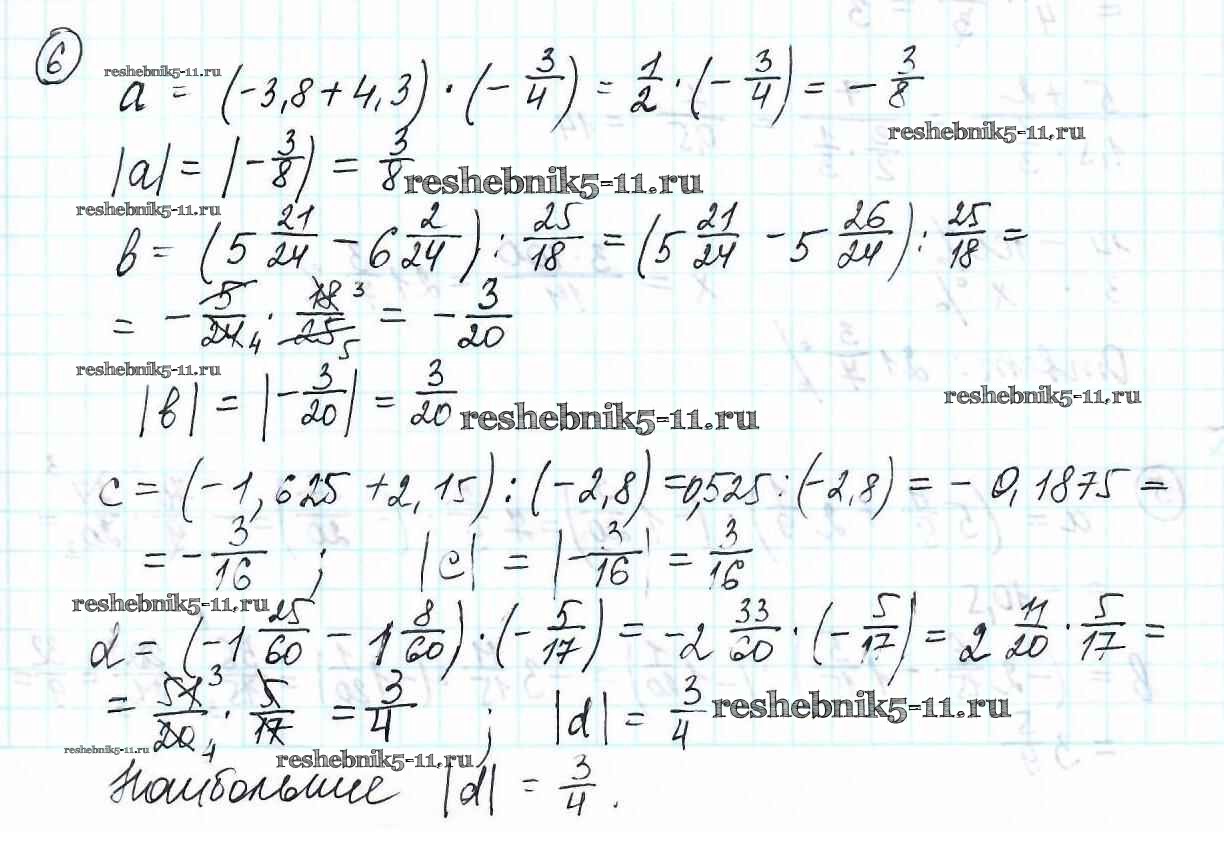 6
reshebnik5-11.ru
a = (-3,8 + 4,3) · (- 3/4) = 1/2 · (- 3/4) = - 3/8
reshebnik5-11.ru
|a| = |- 3/8| = 3/8
reshebnik5-11.ru
reshebnik5-11.ru
в = (5 21/24 - 6 2/24) : 25/18 = (5 21/24 - 5 26/24) : 25/18 =
= - 5/24 4 · 18 3/25 5 = - 3/20
reshebnik5-11.ru
|в| = |- 3/20| = 3/20
reshebnik5-11.ru
reshebnik5-11.ru
c = (-1,625 + 2,15) : (-2,8) = 0,525 : (-2,8) = - 0,1875 =
= - 3/16 ; |c| = |- 3/16| = 3/16
reshebnik5-11.ru
d = (-1 25/60 - 1 8/60) · (- 5/17) = -2 33/60 · (- 5/17) = 2 11/20 · 5/17 =
= 51 3/20 4 · 5/17 = 3/4 ; |d| = 3/4
reshebnik5-11.ru
reshebnik5-11.ru
reshebnik5-11.ru
Наибольшее |d| = 3/4 .